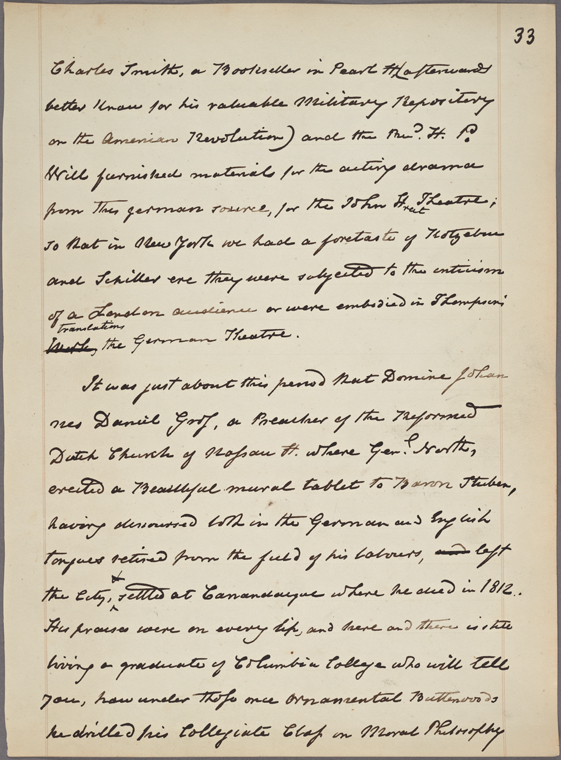 33
Charles Smith, a Bookseller in Pearl St, (afterwards
better know for his valuable Military Repository
on the American Revolution) and the Revd. H. P.
Will furnished materials for the acting drama
from this german source, for the John Street Theatre;
so that in New York we had a foretaste of Kotzebue
and Schiller ere they were subjected to the criticism
of a London audience or were embodied in Thompson's
translations
Work, the German Theatre.
It was just about this period that Domine Johan
nes Daniel Grof, a Preacher of the Reformed
Dutch Church of Nassau St. where Genl. North,
erected a Beautiful mural tablet to Baron Stuben,
having discoursed both in the German and English
tongues retired from the field of his labours, and left
the City, & settled at Canandaigue where he died in 1812.
His praises were on every lip, and here and there is still
living a graduate of Columbia College who will tell
you, how under those once ornamental Buttonwoods
he drilled his Collegiate Class on Moral Philosophy